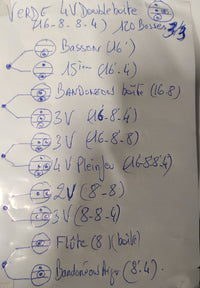 VERDE 4V Double boite
(16-8-8-4) 120 Basses 3/3
Basson (16')
15ième (16'-4)
BANDONEON boîte (16-8)
3V (16-8'-4)
3V (16-8-8)
4V Plein jeu (16-8.8.4)
2V (8-8)
3V (8-8-4)
Flûte (8) (boîte)
Bandonéon Aigu (8'.4).